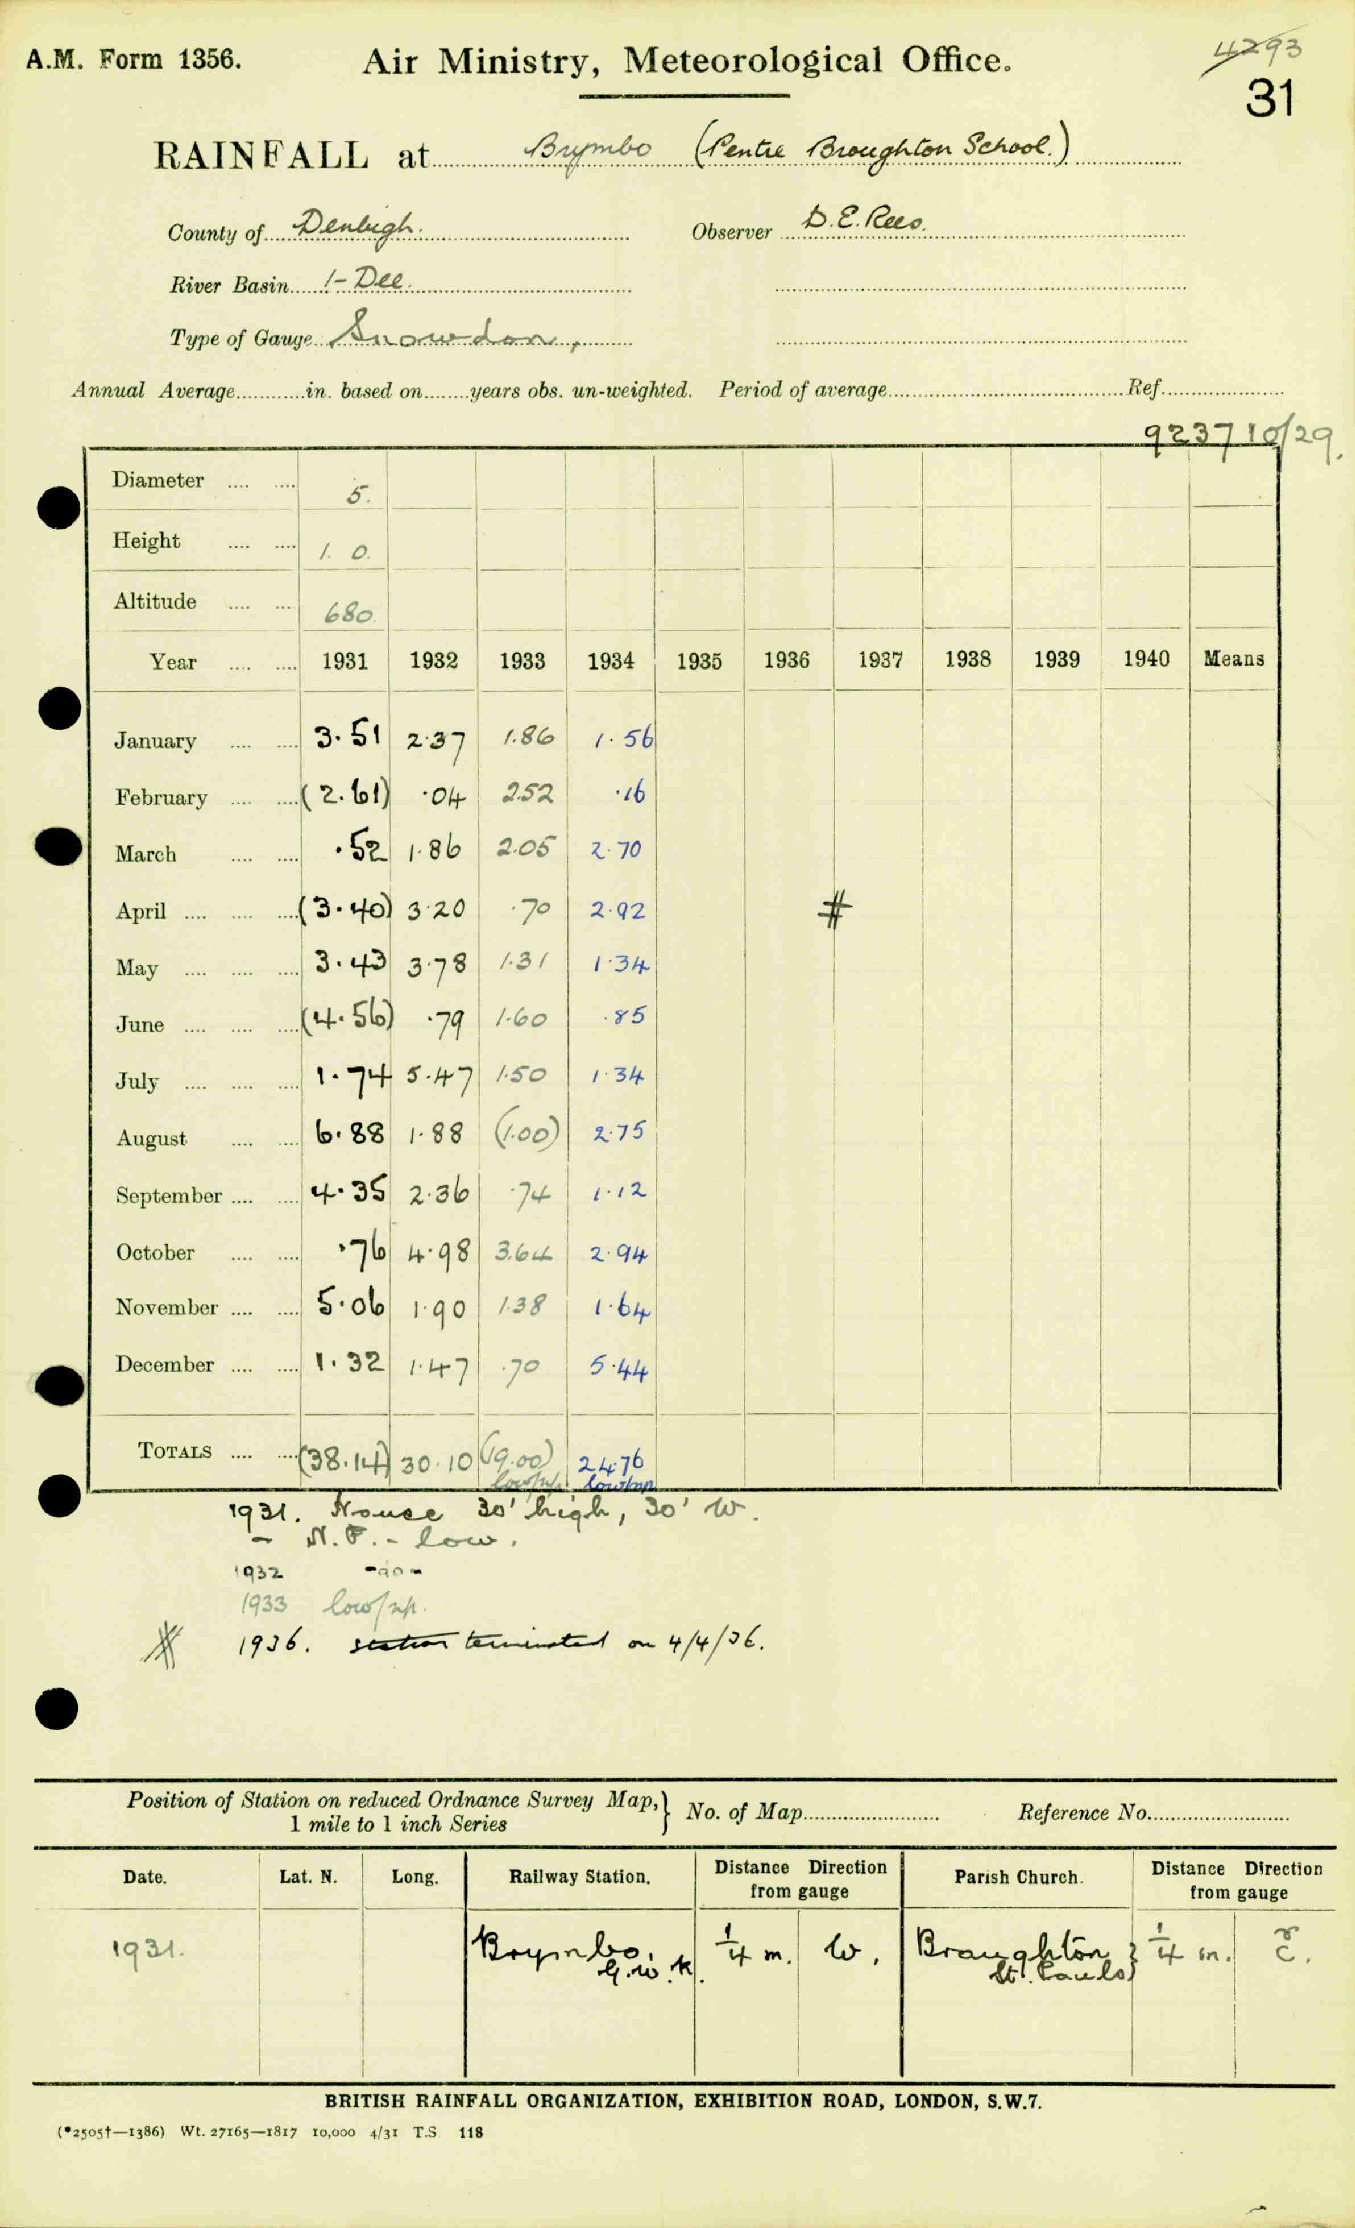 A.M. Form 1356.
Air Ministry, Meteorological Office.
4293
31
RAINFALL at Brymbo (Pentre Broughton School.)
County of Denbigh. Observer D.E. Rees.
River Basin 1-Dee.
Type of Gauge Snowdon,
Annual Average............in. based on........years obs. un-weighted. Period of average............Ref............
9237 10/29.
Diameter .... .... 5.
Height .... .... 1. 0.
Altitude .... .... 680
Year .... .... 1931 1932 1933 1934 1935 1936 1937 1938 1939 1940 Means
January .... .... 3.51 2.37 1.86 1.56
February .... .... (2.61) .04 2.52 .16
March .... .... .52 1.86 2.05 2.70
April .... .... .... (3.40) 3.20 .70 2.92 #
May .... .... .... 3.43 3.78 1.31 1.34
June .... .... .... (4.56) .79 1.60 .85
July .... .... .... 1.74 5.47 1.50 1.34
August .... .... 6.88 1.88 (1.00) 2.75
September .... .... 4.35 2.36 .74 1.12
October .... .... .76 4.98 3.64 2.94
November .... .... 5.06 1.90 1.38 1.64
December .... .... 1.32 1.47 .70 5.44
TOTALS .... .... (38.14) 30.10 (19.00) 24.76
low/np. low/np
1931. House 30' high, 30' W.
- N.P. - low.
1932 -do-
1933 low/np.
# 1936. station terminated on 4/4/36.
Position of Station on reduced Ordnance Survey Map,} No. of Map............ Reference No............
1 mile to 1 inch Series
Date. Lat. N. Long. Railway Station. Distance Direction from gauge Parish Church. Distance Direction from gauge
1931. Brymbo. 1/4 m. W. Broughton } 1/4 m.
G.W.R. St. Pauls
BRITISH RAINFALL ORGANIZATION, EXHIBITION ROAD, LONDON, S.W.7.
(*2505†—1386) Wt. 27165—1817 10,000 4/31 T.S 118